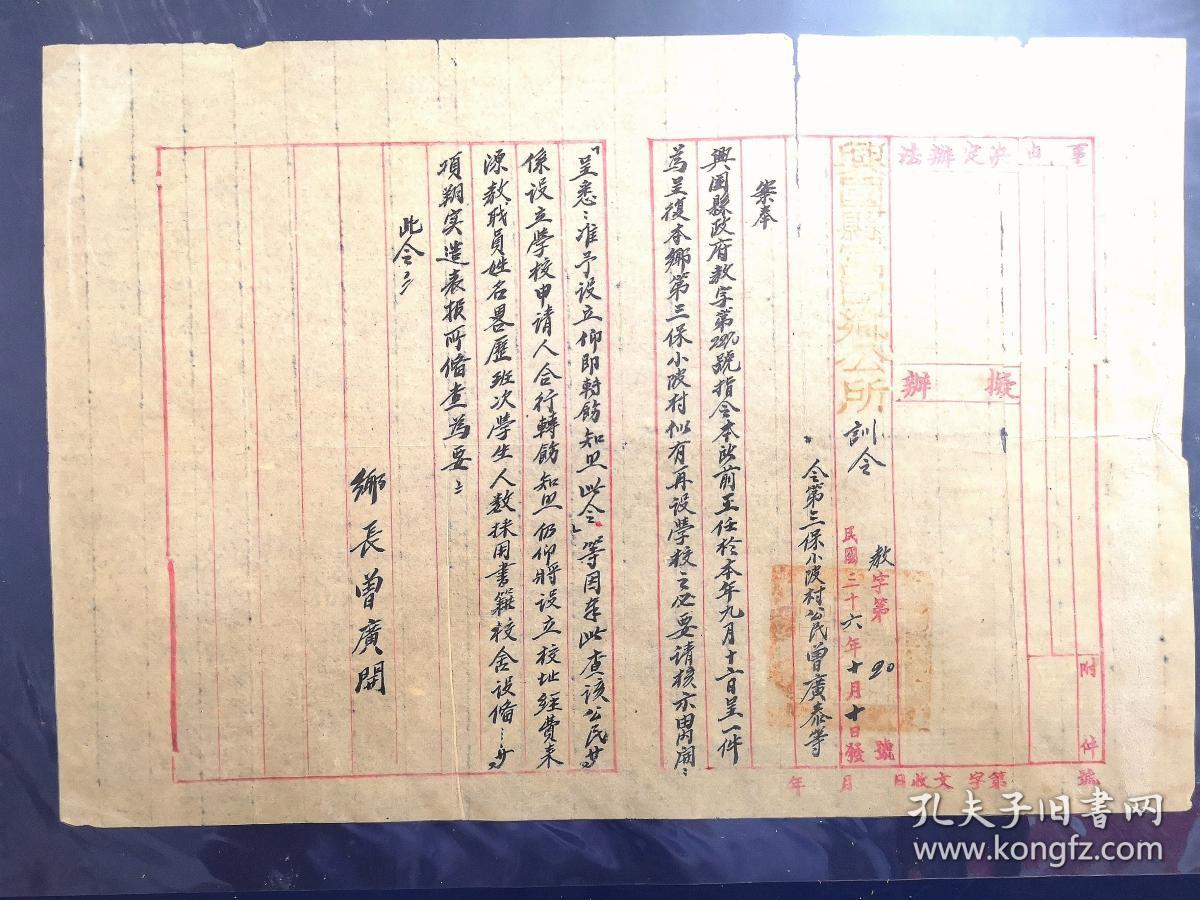 事由
決定辦法
擬辦
附件
號
年 月 日收文 字第
興國縣富國鄉公所 訓令
教字第 20 號
民國三十六年十月十日發
令第三保小陂村公民曾廣泰等
案奉
興國縣政府教字第 號指令本所前主任於本年九月十六日呈一件
為呈復本鄉第三保小陂村似有再設學校之必要請核示由內開:
「呈悉:准予設立仰即轉飭知照此令」等因奉此查該公民等
係设立學校申请人合行轉飭知照仍仰將設立校址经費来
源教職員姓名畧歷班次學生人数採用書籍校舍设備…等
項翔实造表报所備查為要:
此令:
鄉長曾廣開
孔夫子旧书网
www.kongfz.com